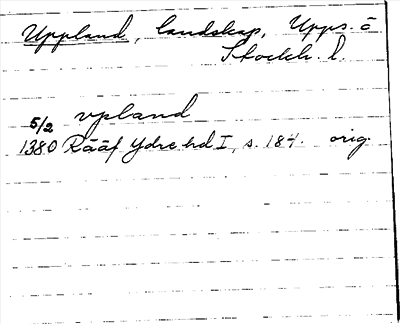 Uppland, landskap, Upps. o
Stockh. l.
vpland
5/2
1380 Rääf Ydre hd I, s. 184. orig.